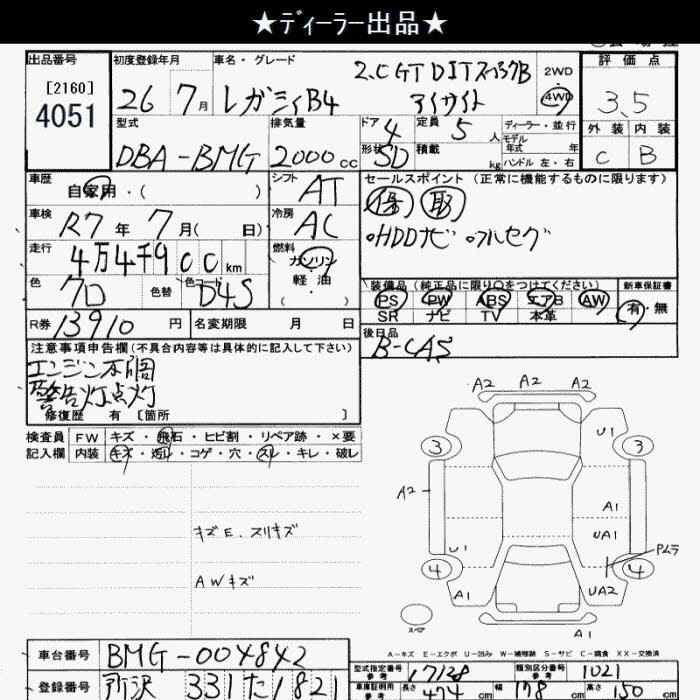 ★ディーラー出品★
出品番号
[2160]
4051
初度登録年月
26 7月
車名・グレード
2.0 GT DIT スペックB
レガシィB4 アイサイト
2WD
4WD
評価点
3.5
外装 内装
C B
型式
DBA-BMG
排気量
2000cc
ドア 4
定員 5人
形状 SD
積載 kg
ディーラー・並行
モデル年式 年
ハンドル 左・右
車歴
自家用・( )
シフト
AT
車検
R7年 7月( 日)
冷房
AC
走行
4万4千900km
燃料
ガソリン
軽油
( ・ )
色
クロ
色替
色コード
D4S
R券
13910円
名変期限 月 日
セールスポイント (正常に機能するものに限ります)
保 取
。HDDナビ 。フルセグ
装備品 (純正品に限り○をつけてください)
PS PW ABS エアB AW
SR ナビ TV 本革
新車保証書
有・無
後日品
B-CAS
注意事項申告欄(不具合内容等は具体的に記入して下さい)
エンジン不調
警告灯点灯
修復歴 有 [箇所 ]
検査員
記入欄
FW キズ・飛石・ヒビ割・リペア跡・×要
内装 キズ・汚れ・コゲ・穴・スレ・キレ・破レ
キズE. スリキズ
AWキズ
A2 A2 A2
3 U1 3
A2
A1
UA1
U1
Pムラ
4 4
A1 UA2
スペア
A1
A-キズ E-エクボ U-凹み W-補修跡 S-サビ C-腐食 XX-交換済
車台番号
BMG-004842
登録番号
所沢 331 た 1821
型式指定番号
参考
17128
類別区分番号
参考
1021
車庫証明用
参考
長さ 474cm
幅 178cm
高さ 150cm